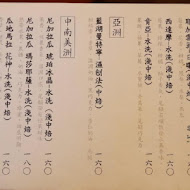 西達摩-水洗(淺中焙) 一六〇
肯亞-水洗(淺中焙) 一六〇
亞洲
藍湖曼特寧 濕刨法(中焙) 一六〇
中南美洲
尼加拉瓜 琥珀冰晶-水洗(淺中焙) 一六〇
尼加拉瓜 瑪莎耶薩-水洗(淺中焙) 一八〇
瓜地馬拉 花神-水洗(淺中焙) 一六〇